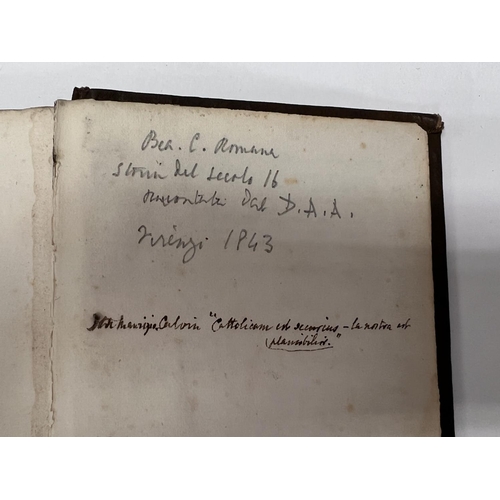 Bea. C. Romana
Storia del secolo 16
raccontata dal D.A.A.
Firenze 1843
Calvin "Cattolicam est securius – la nostra est
plausibilior."